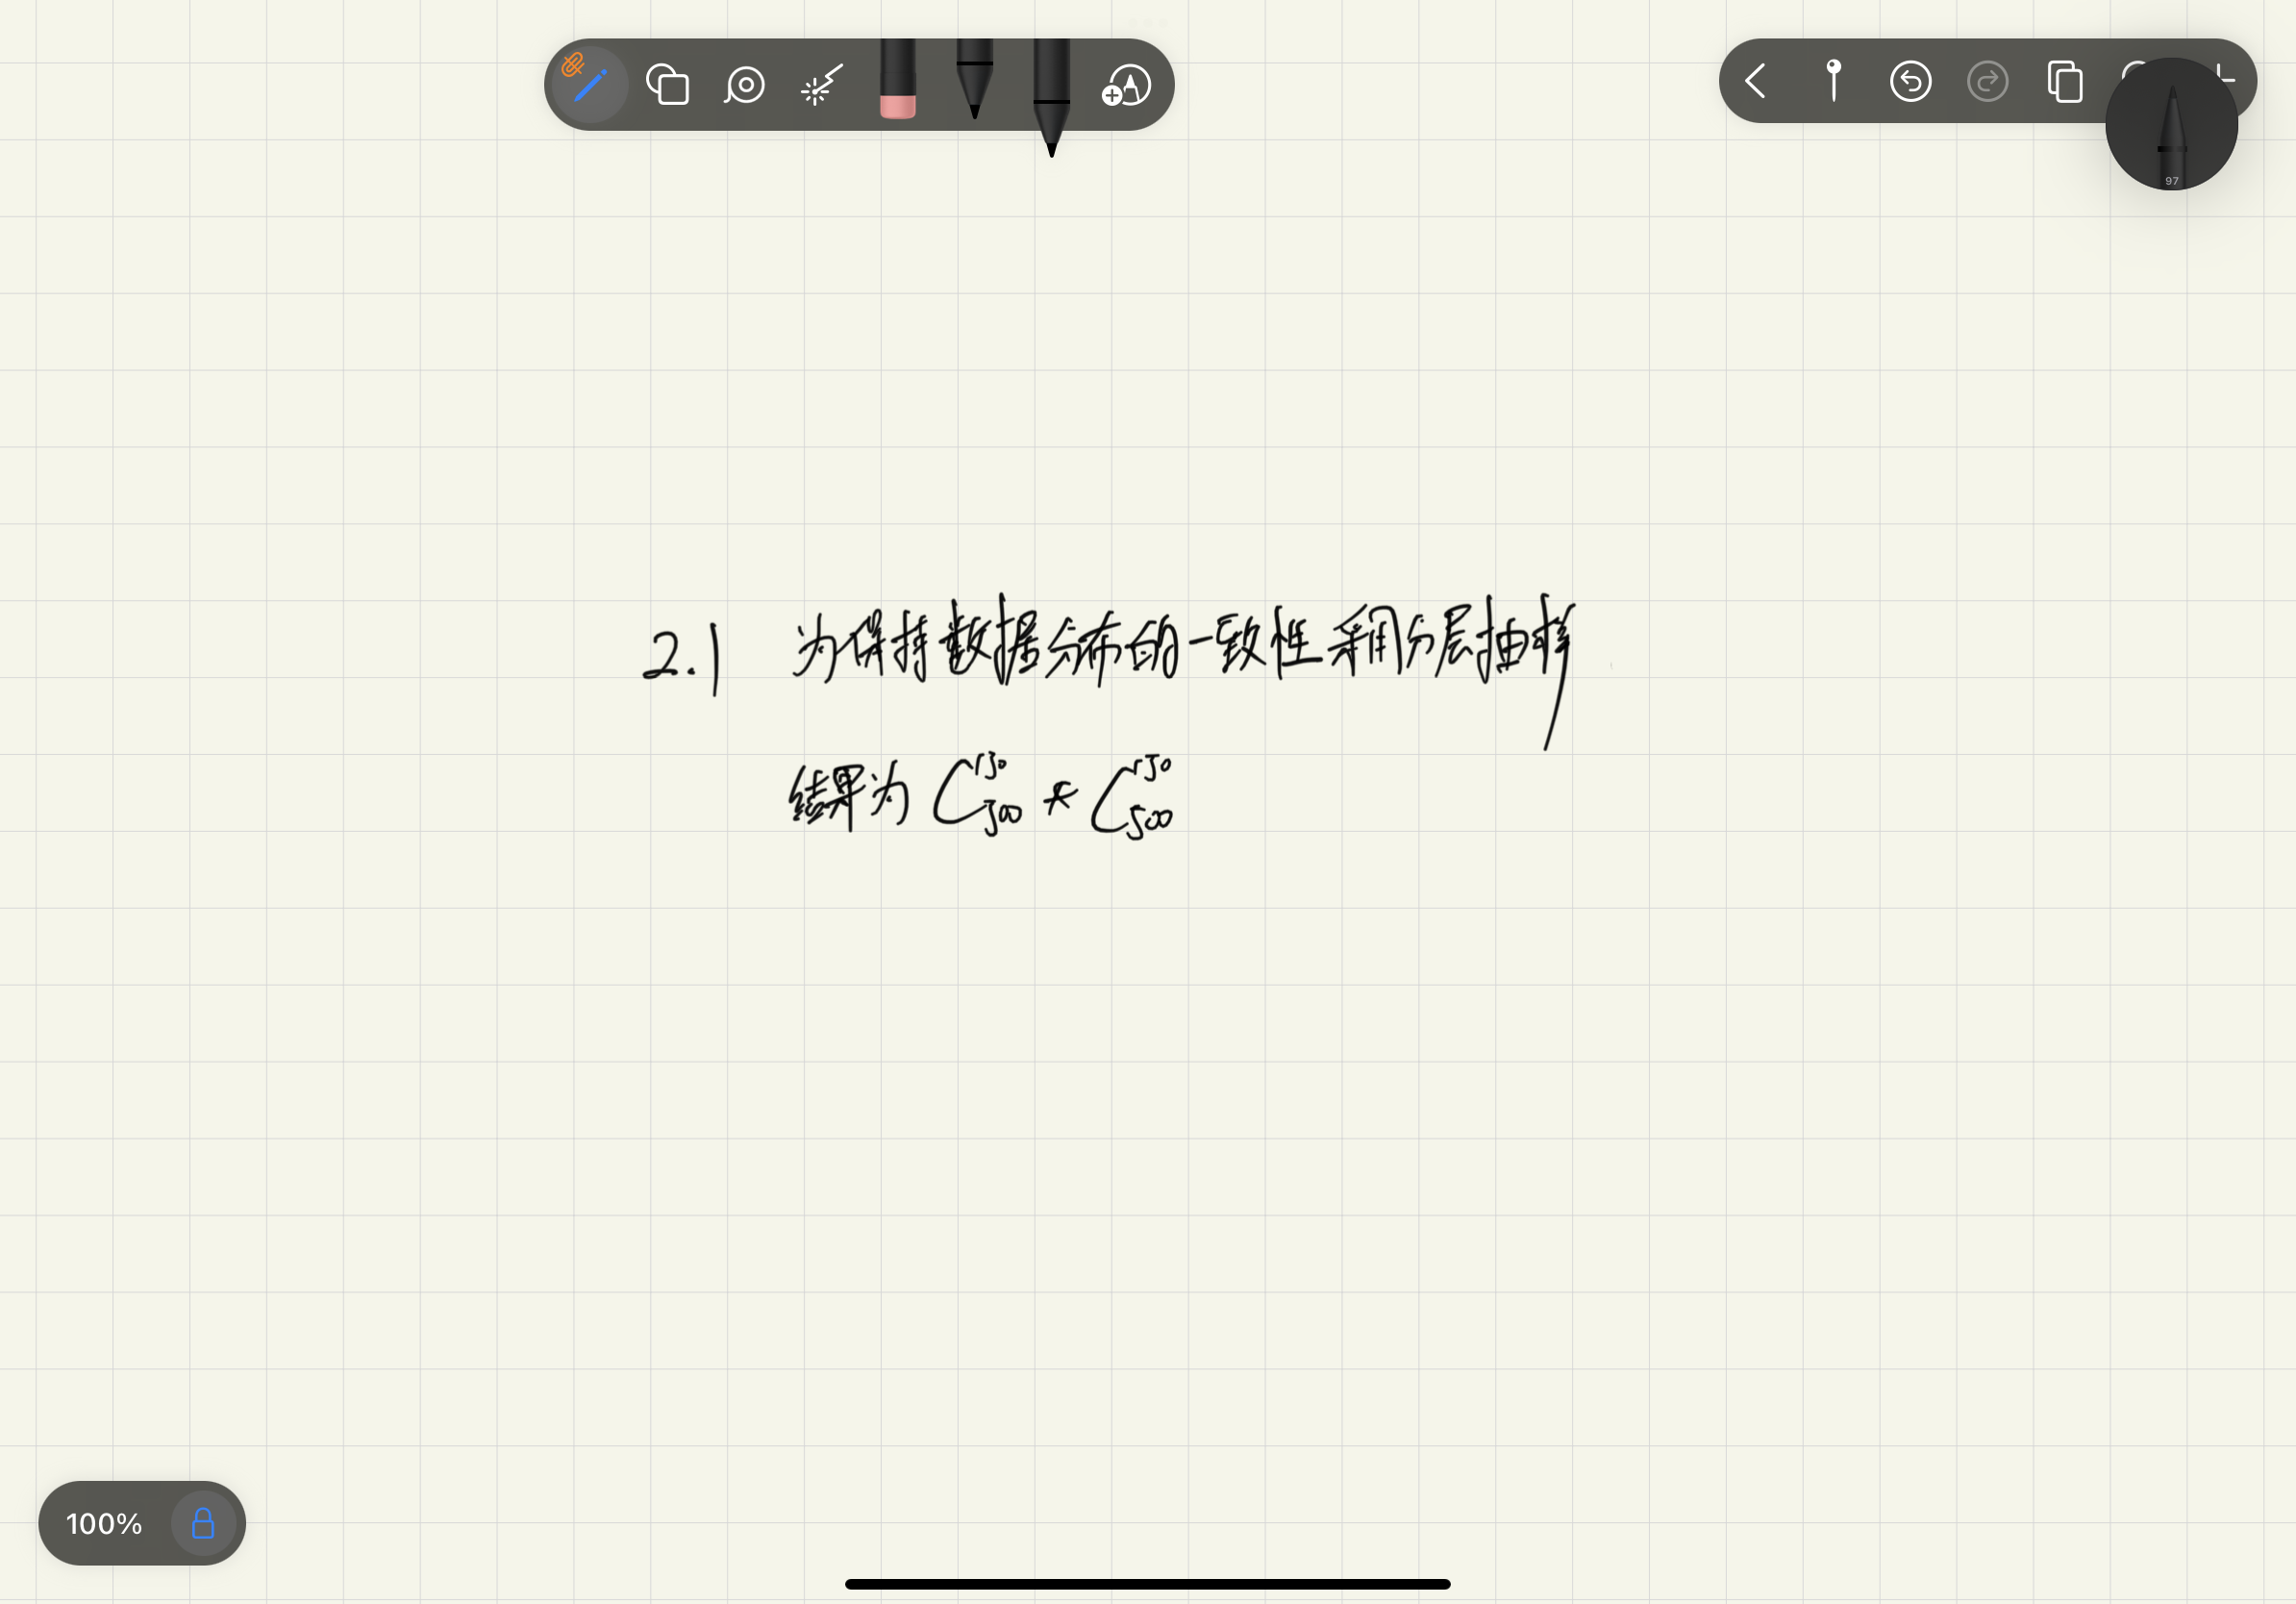 97
2.1 为保持数据分布的一致性利用分层抽样
结果为 C₅₀₀¹⁵⁰ * C₅₀₀¹⁵⁰
100%